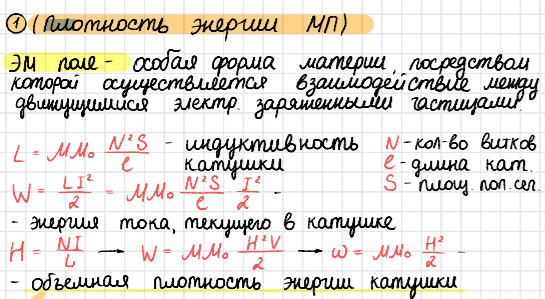 ① (Плотность энергии МП)
ЭМ поле - особая форма материи, посредством
которой осуществляется взаимодействие между
движущимися электр. заряженными частицами.
L = μμ₀ N²S/ℓ - индуктивность катушки
N - кол-во витков
ℓ - длина кат.
S - площ. поп. сеч.
W = LI²/2 = μμ₀ N²S/ℓ · I²/2 -
- энергия тока, текущего в катушке
H = NI/L → W = μμ₀ H²V/2 → ω = μμ₀ H²/2 -
- объемная плотность энергии катушки